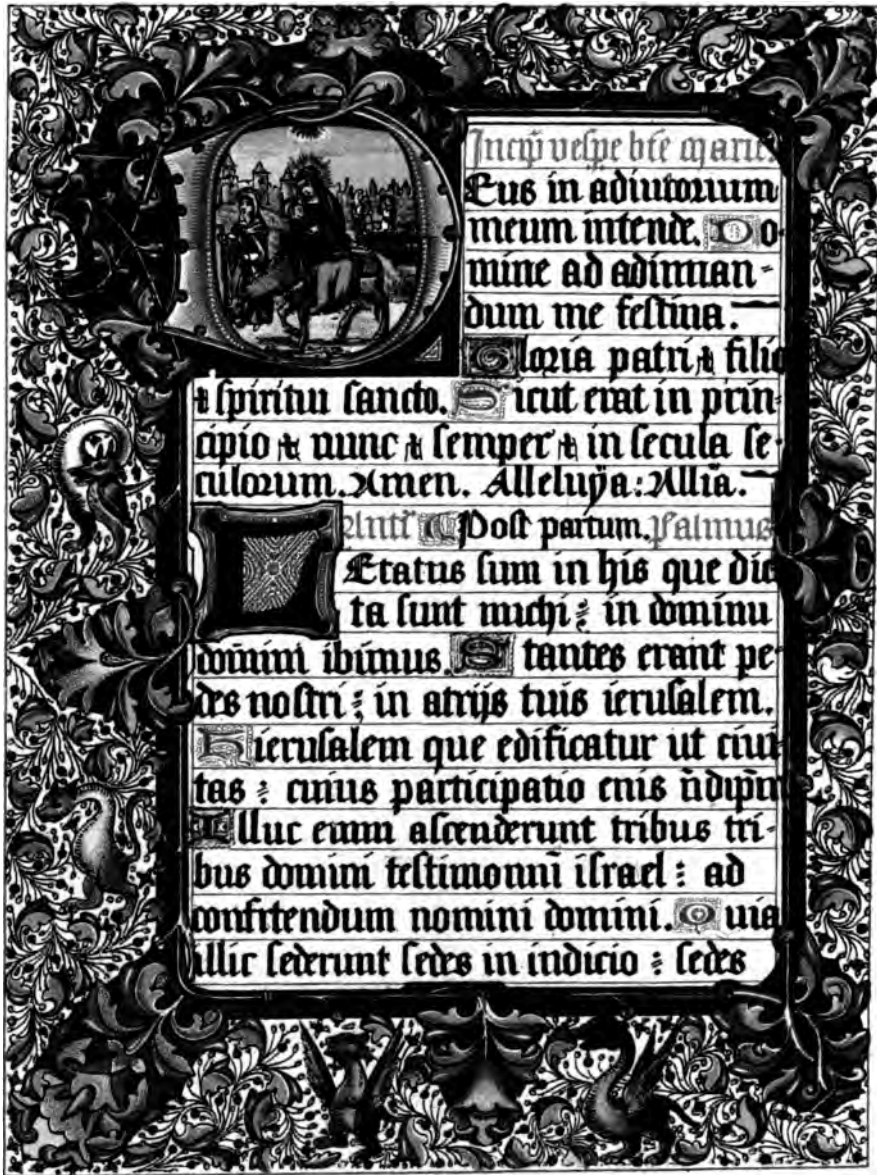 Incip̄ vespe bt̄e marie.
Deus in adiutorium
meum intende. Do-
mine ad adiuuan-
dum me festina.
Gloria patri ⁊ filio
⁊ spiritui sancto. Sicut erat in prin-
cipio ⁊ nunc ⁊ semper ⁊ in secula se-
culorum. Amen. Alleluÿa: Allīa.
Ant̄ Post partum. Psalmus
Letatus sum in his que dic
ta sunt michi: in dominu
dom̄ini ibimus. Stantes erant pe-
des nostri: in atrijs tuis ierusalem.
Hierusalem que edificatur ut ciui-
tas: cuius participatio enis
Illuc enim ascenderunt tribus tri-
bus domini testimonnī israel: ad
confitendum nomini domini. Quia
illic sederunt sedes in indicio: sedes